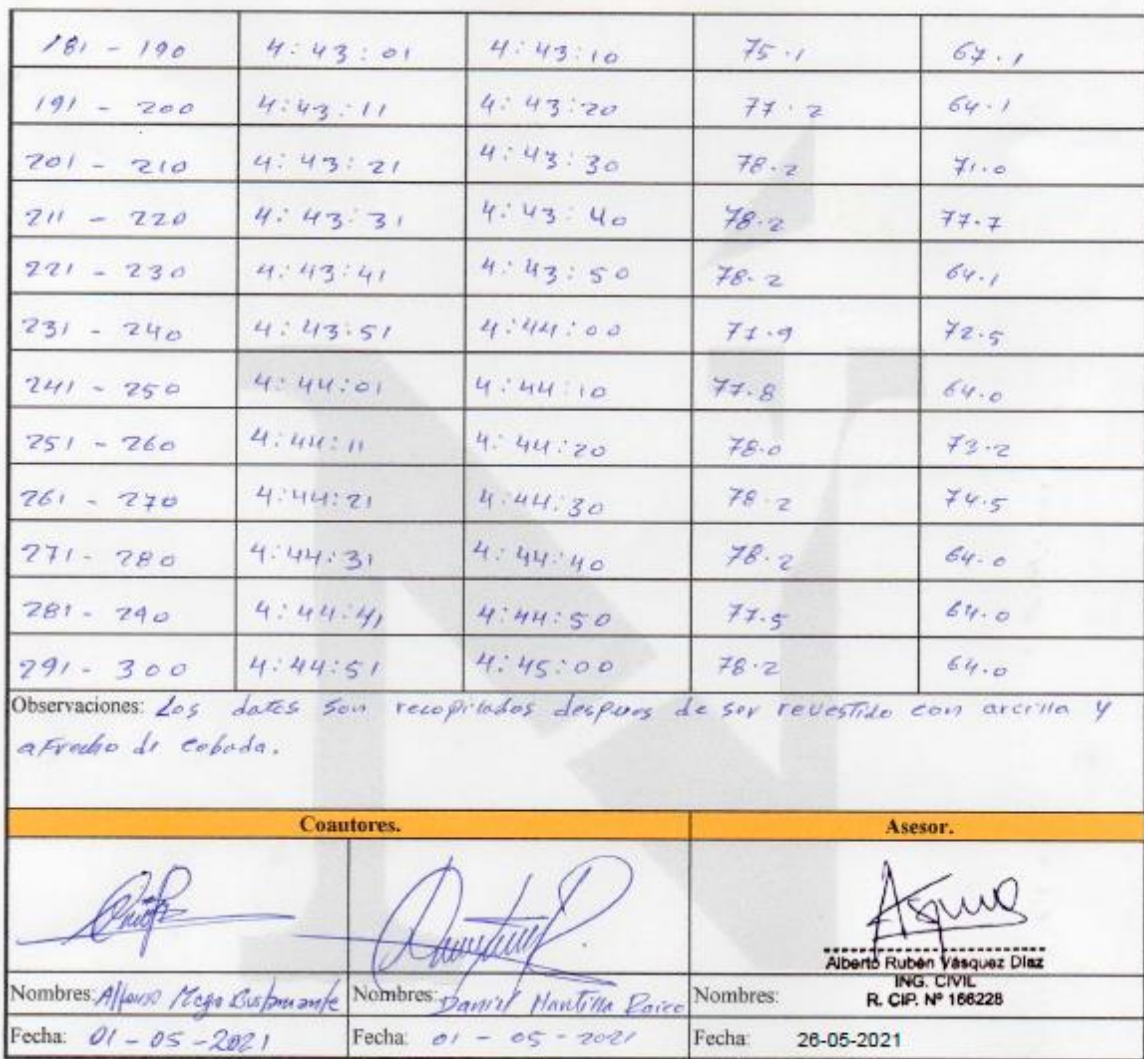 181 - 190 4:43:01 4:43:10 75.1 67.1
191 - 200 4:43:11 4:43:20 77.2 64.1
201 - 210 4:43:21 4:43:30 78.2 71.0
211 - 220 4:43:31 4:43:40 78.2 77.7
221 - 230 4:43:41 4:43:50 78.2 64.1
231 - 240 4:43:51 4:44:00 77.9 72.5
241 - 250 4:44:01 4:44:10 77.8 64.0
251 - 260 4:44:11 4:44:20 78.0 73.2
261 - 270 4:44:21 4:44:30 78.2 74.5
271 - 280 4:44:31 4:44:40 78.2 64.0
281 - 290 4:44:41 4:44:50 77.5 64.0
291 - 300 4:44:51 4:45:00 78.2 64.0
Observaciones: Los datos son recopilados despues de ser revestido con arcilla y
afrecho de cebada.
Coautores. Asesor.
Alberto Rubén Vásquez Díaz
ING. CIVIL
R. CIP. Nº 166228
Nombres: Alfonso Mego Bustamante Nombres: Daniel Mantilla Nombres:
Fecha: 01-05-2021 Fecha: 01-05-2021 Fecha: 26-05-2021